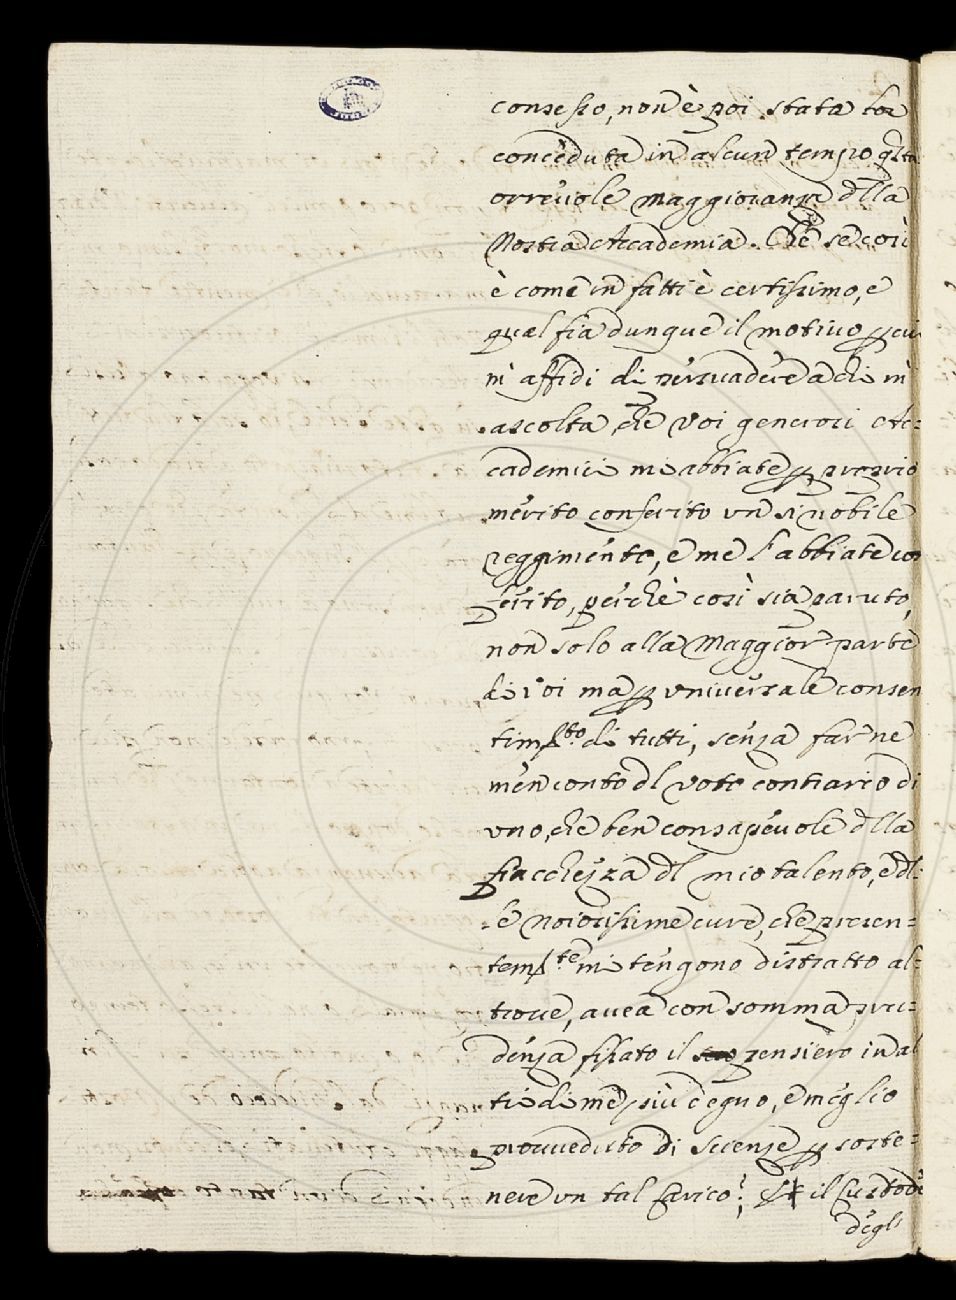 consesso, non è poi stata lor
conceduta in alcun tempo q̃sta
orrevole maggioranza d̃lla
Nostra Accademia. Che se così
è come in fatti è certissimo, e
qual fia dunque il motivo ꝑ cui
m'affidi di persuadere a chi m'
ascolta, che Voi generosi Ac=
cademici mi abbiate ꝑ proprio
merito conferito vn sì nobile
reggimento, e me l'abbiate con
ferito, perchè così sia paruto,
non solo alla Maggior parte
di Voi ma ꝑ vniversale consen
tim.to di tutti, senza far ne
men conto dl voto contrario di
vno, che ben consapevole d̃lla
fiacchezza dl mio talento, e dl=
=e noiosissime cure, che presen=
tem.te mi tengono distratto al=
trove, avea con somma pru=
denza fissato il pensiero in al
tri di me più degno, e meglio
provveduto di scienze ꝑ soste=
nere vn tal carico? il Custode
degl'